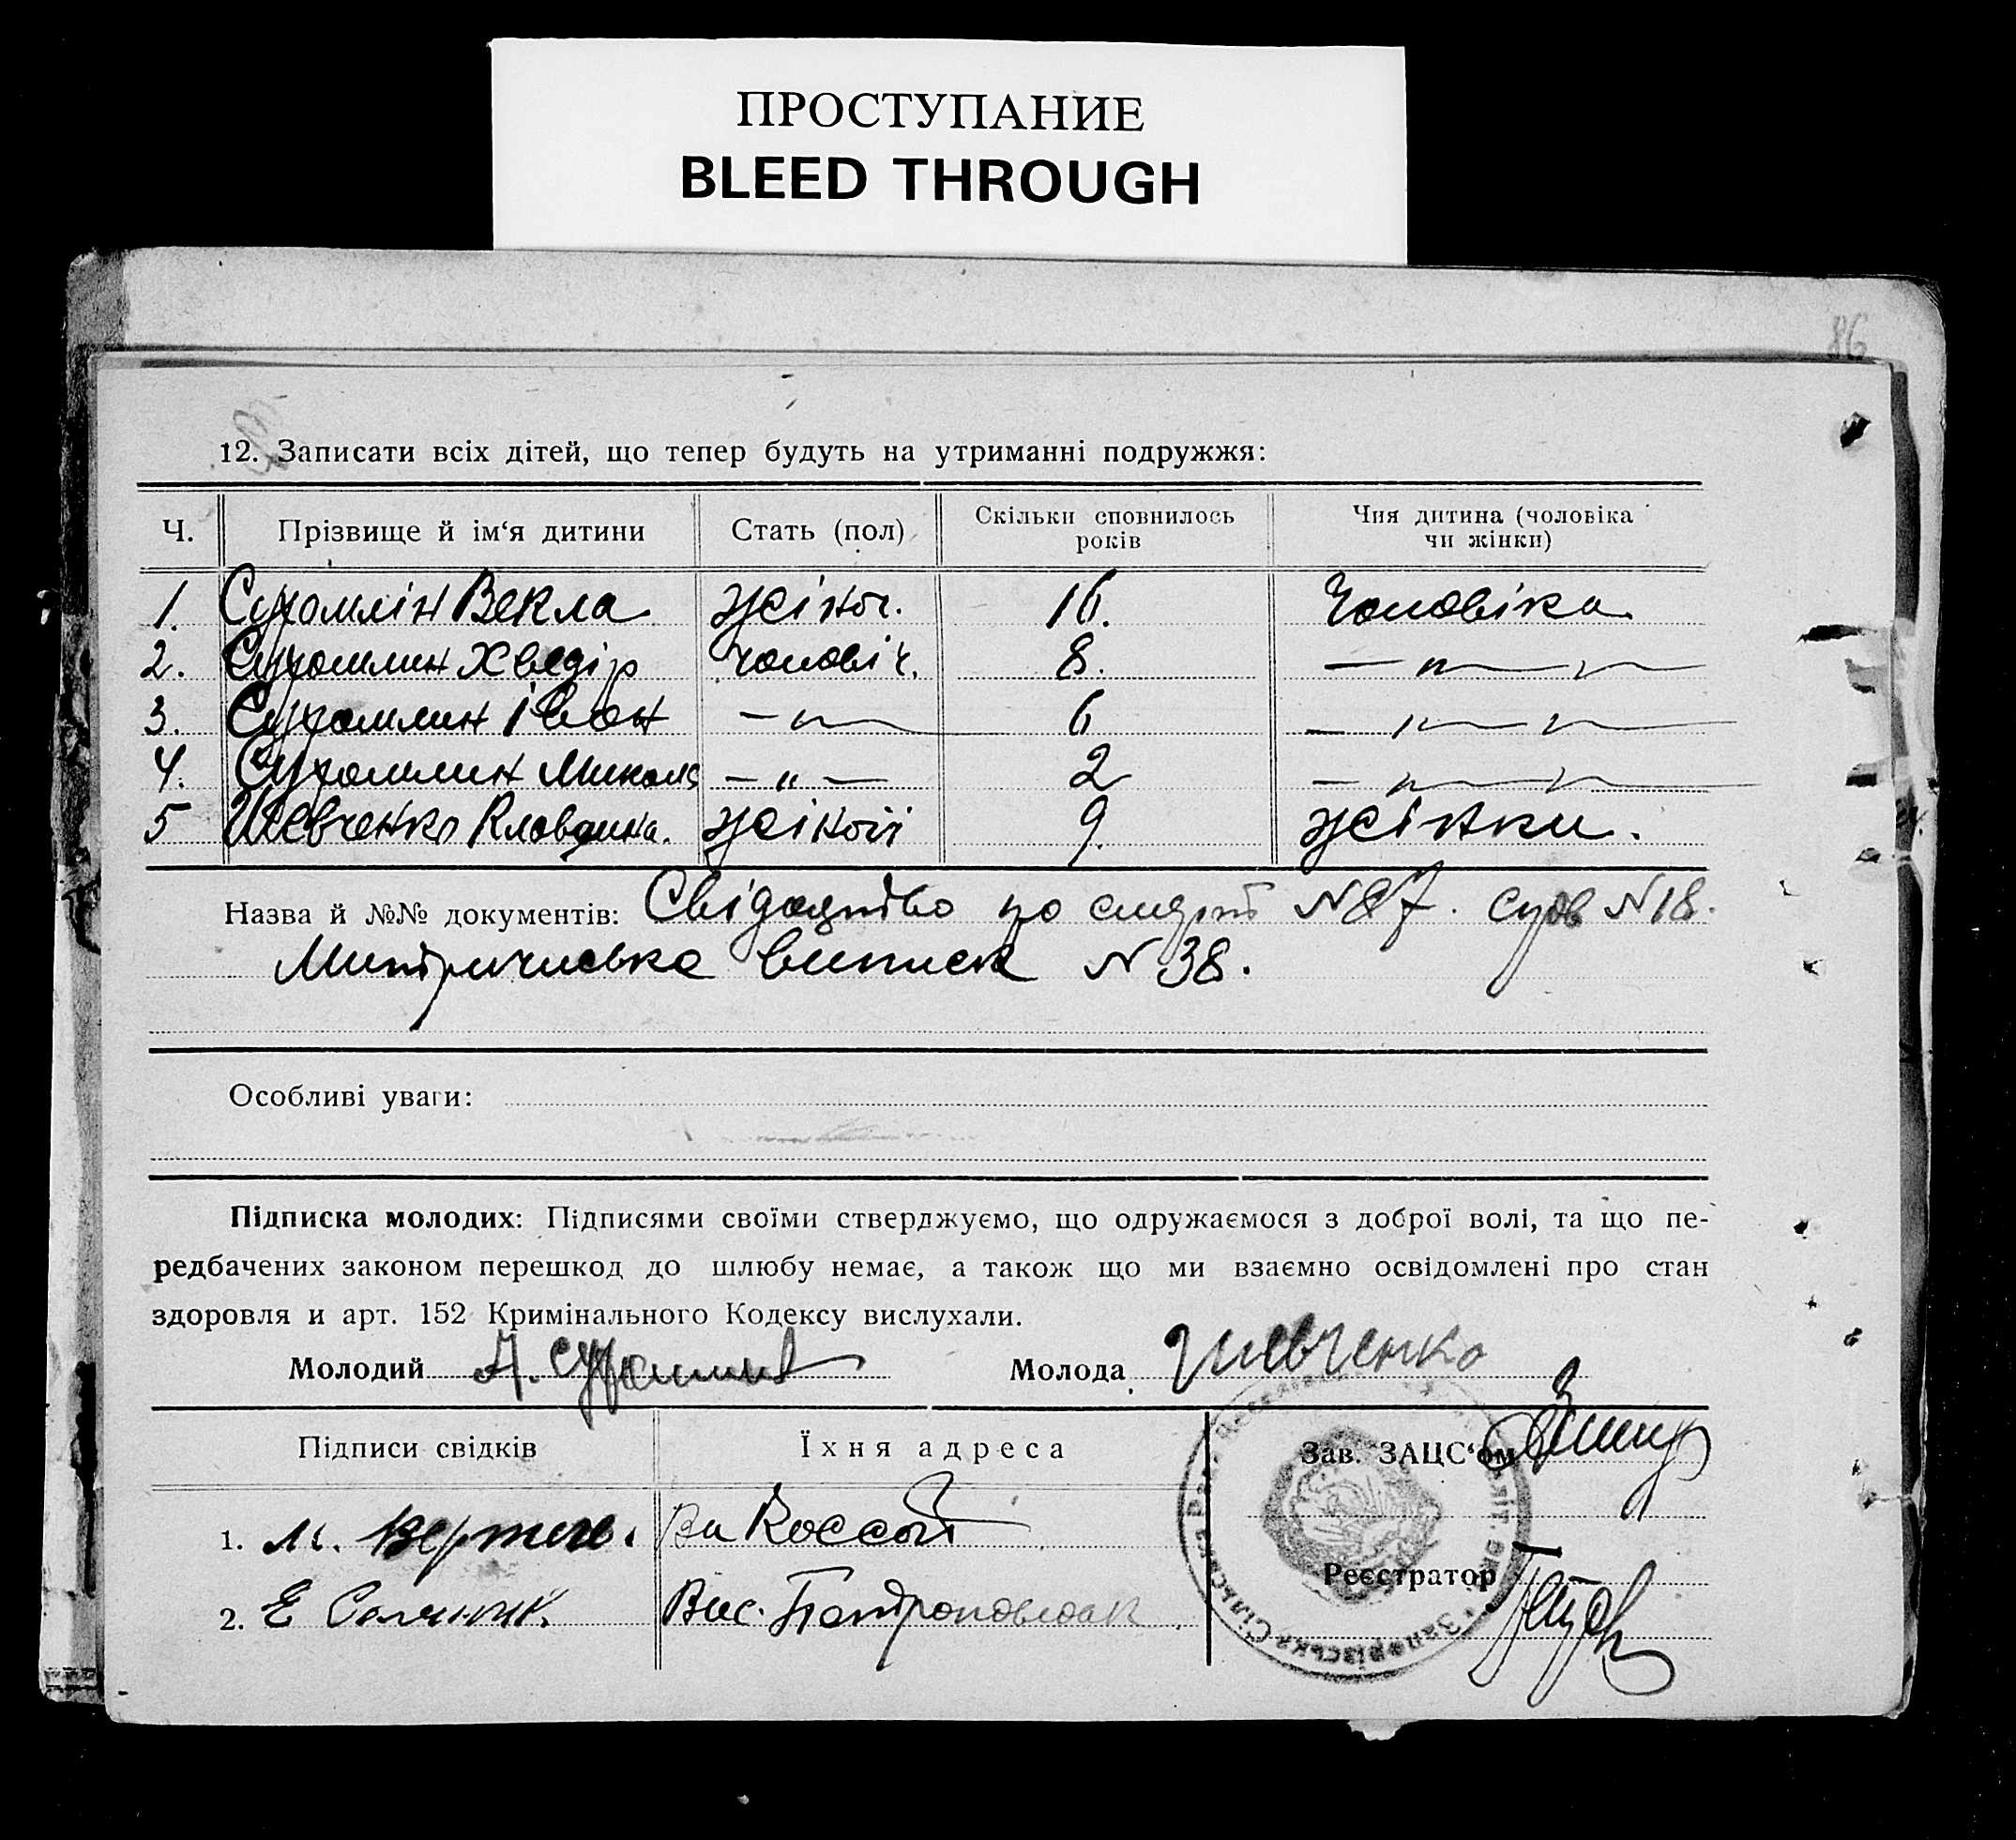 ПРОСТУПАНИЕ
BLEED THROUGH
86
12. Записати всіх дітей, що тепер будуть на утриманні подружжя:
Ч. Прізвище й ім‘я дитини Стать (пол) Скільки сповнилось років Чия дитина (чоловіка чи жінки)
1. Сухомлін Векла жіноч. 16. Чоловіка
2. Сухомлин Хведір чоловіч. 8. — " — " —
3. Сухомлин Іван — " — 6 — " — " —
4. Сухомлин Микола — " — 2 — " — " —
5 Шевченко Клавдина. жіночі 9. жінки.
Назва й №№ документів: Свідоцтво по смерті №87. судов №18.
Митричиська виписк №38.
Особливі уваги:
Підписка молодих: Підписями своїми стверджуємо, що одружаємося з доброї волі, та що пе-
редбачених законом перешкод до шлюбу немає, а також що ми взаємно освідомлені про стан
здоровля и арт. 152 Кримінального Кодексу вислухали.
Молодий А. Сухомлин Молода Шевченко
Підписи свідків Їхня адреса Зав. ЗАЦС‘ом
1. М.
Реєстратор
2. Е Вас.
Запорізська Сільська